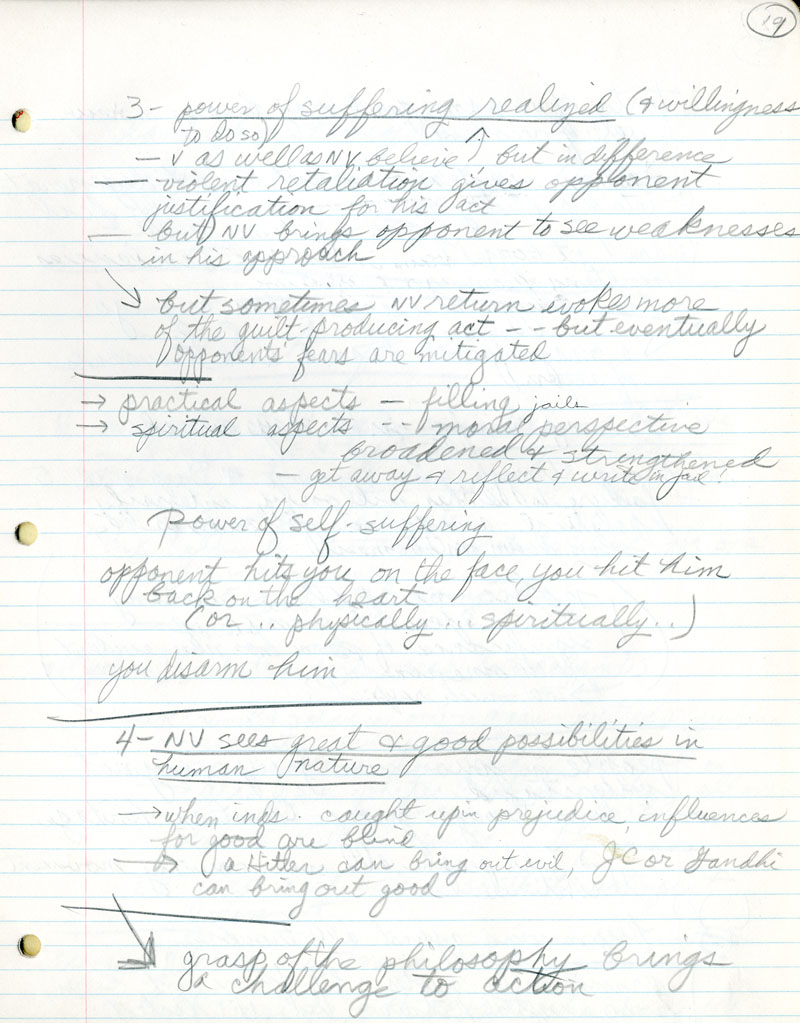 19
3- power of suffering realized (& willingness
to do so)
- V as well as NV believe ↑ but in difference
— violent retaliation gives opponent
justification for his act
— but NV brings opponent to see weaknesses
in his approach
↘ but sometimes NV return evokes more
of the guilt-producing act -- but eventually
opponents fears are mitigated
→ practical aspects - filling jails
→ spiritual aspects -- moral perspective
broadened & strengthened
- get away & reflect & write in jail!
Power of self-suffering
opponent hits you on the face, you hit him
back on the heart
(or .. physically ... spiritually..)
you disarm him
4- NV sees great & good possibilities in
human nature
→ when inds. caught up in prejudice, influences
for good are blind
→ a Hitler can bring out evil, JC or Gandhi
can bring out good
↘ grasp of the philosophy brings
a challenge to action